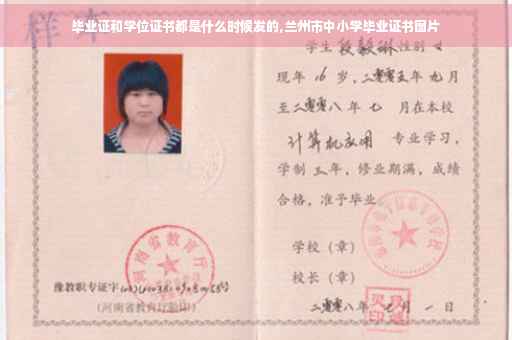 毕业证和学位证书都是什么时候发的,兰州市中小学毕业证书图片
样本
学生 段毅琳 性别 女
现年 16 岁，二零零五年 九月
至二零零八年 七 月在本校
计算机应用 专业学习，
学制 三年，修业期满，成绩
合格，准予毕业。
学校（章）
校长（章）
二零零八年 七 月 一 日
河南省教育厅
豫教职专证字
(河南省教育厅验印)